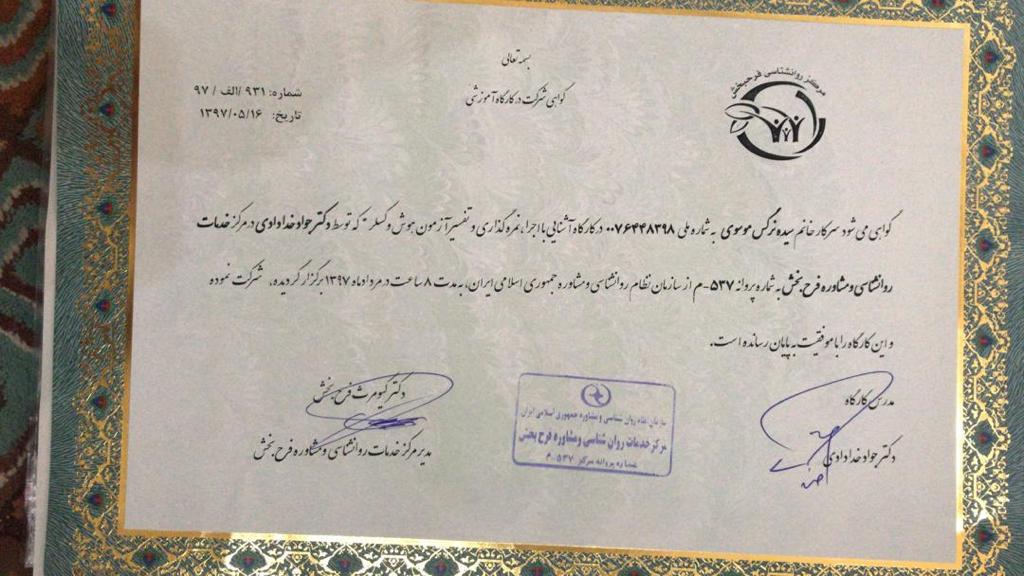 بسمه تعالی
گواهی شرکت در کارگاه آموزشی
شماره: ۹۳۱ /الف / ۹۷
تاریخ: ۱۳۹۷/۰۵/۱۶
مرکز روانشناسی فرحبخش
گواهی می شود سرکار خانم سیده نرگس موسوی به شماره ملی ۰۰۷۶۴۴۸۳۹۸ در کارگاه آشنایی با اجرا، نمره گذاری و تفسیر آزمون هوش وکسلر که توسط دکتر جواد خدادادی در مرکز خدمات
روانشناسی و مشاوره فرح بخش به شماره پروانه ۵۳۷-م از سازمان نظام روانشناسی و مشاوره جمهوری اسلامی ایران، به مدت ۸ ساعت در مرداد ماه ۱۳۹۷ برگزار گردیده، شرکت نموده
و این کارگاه را با موفقیت به پایان رسانده است.
مدرس کارگاه
دکتر جواد خدادادی
سازمان نظام روان شناسی و مشاوره جمهوری اسلامی ایران
مرکز خدمات روان شناسی ومشاوره فرح بخش
شماره پروانه مرکز ۵۳۷-م
دکتر کیومرث فرح بخش
مدیر مرکز خدمات روانشناسی و مشاوره فرح بخش